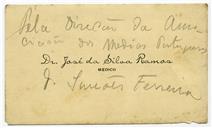 Pela Direcção da Asso-
ciação dos Medicos Portugueses
Dr. José da Silva Ramos
MEDICO
J. Simões Ferreira